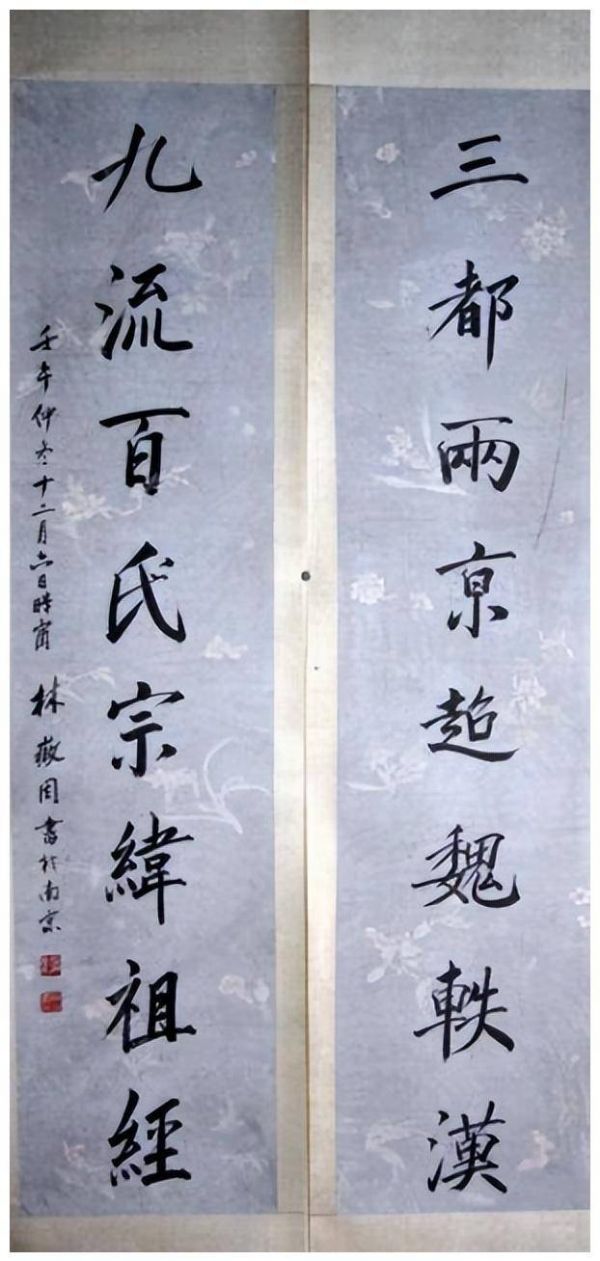 三都兩亰超魏軼漢
九流百氏宗緯祖經
壬午仲冬十二月六日時 林 周書於南京